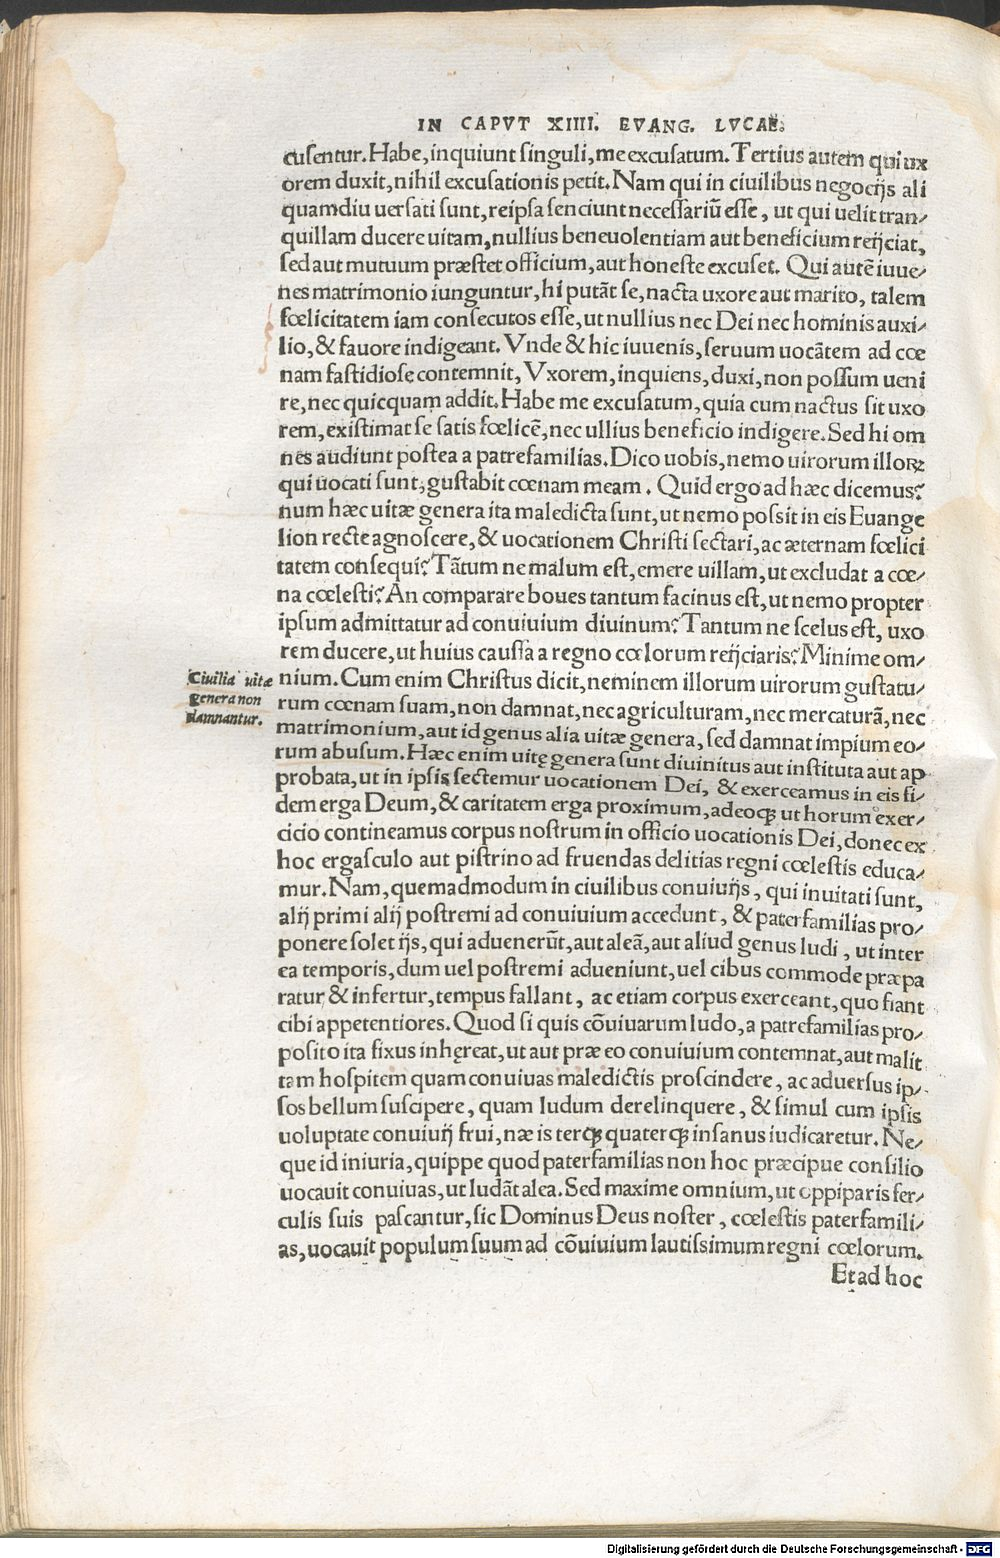 IN CAPVT XIIII. EVANG. LVCAE.
cusentur. Habe, inquiunt singuli, me excusatum. Tertius autem qui ux
orem duxit, nihil excusationis petit. Nam qui in ciuilibus negocijs ali
quamdiu uersati sunt, reipsa senciunt necessariū esse, ut qui uelit tran-
quillam ducere uitam, nullius beneuolentiam aut beneficium reijciat,
sed aut mutuum præstet officium, aut honeste excuset. Qui autē iuue-
nes matrimonio iunguntur, hi putāt se, nacta uxore aut marito, talem
fœlicitatem iam consecutos esse, ut nullius nec Dei nec hominis auxi-
lio, & fauore indigeant. Vnde & hic iuuenis, seruum uocātem ad cœ
nam fastidiose contemnit, Vxorem, inquiens, duxi, non possum ueni
re, nec quicquam addit. Habe me excusatum, quia cum nactus sit uxo
rem, existimat se satis fœlicē, nec ullius beneficio indigere. Sed hi om
nes audiunt postea a patrefamilias. Dico uobis, nemo uirorum illoꝝ
qui uocati sunt, gustabit cœnam meam. Quid ergo ad hæc dicemus?
num hæc uitæ genera ita maledicta sunt, ut nemo possit in eis Euange
lion recte agnoscere, & uocationem Christi sectari, ac æternam fœlici
tatem consequi? Tātum ne malum est, emere uillam, ut excludat a cœ-
na cœlesti? An comparare boues tantum facinus est, ut nemo propter
ipsum admittatur ad conuiuium diuinum? Tantum ne scelus est, uxo
rem ducere, ut huius caussa a regno cœlorum reijciaris? Minime om-
Ciuilia uitæ
genera non
damnantur.
nium. Cum enim Christus dicit, neminem illorum uirorum gustatu-
rum cœnam suam, non damnat, nec agriculturam, nec mercaturā, nec
matrimonium, aut id genus alia uitæ genera, sed damnat impium eo-
rum abusum. Hæc enim uitę genera sunt diuinitus aut instituta aut ap
probata, ut in ipsis sectemur uocationem Dei, & exerceamus in eis fi-
dem erga Deum, & caritatem erga proximum, adeoqꝫ ut horum exer-
cicio contineamus corpus nostrum in officio uocationis Dei, donec ex
hoc ergasculo aut pistrino ad fruendas delitias regni cœlestis educa-
mur. Nam, quemadmodum in ciuilibus conuiuijs, qui inuitati sunt,
alij primi alij postremi ad conuiuium accedunt, & paterfamilias pro-
ponere solet ijs, qui aduenerūt, aut aleā, aut aliud genus ludi, ut inter
ea temporis, dum uel postremi adueniunt, uel cibus commode præpa
ratur & infertur, tempus fallant, ac etiam corpus exerceant, quo fiant
cibi appetentiores. Quod si quis cōuiuarum ludo, a patrefamilias pro-
posito ita fixus inhęreat, ut aut præ eo conuiuium contemnat, aut malit
tam hospitem quam conuiuas maledictis proscindere, ac aduersus ip-
sos bellum suscipere, quam ludum derelinquere, & simul cum ipsis
uoluptate conuiuij frui, næ is terqꝫ quaterqꝫ insanus iudicaretur. Ne-
que id iniuria, quippe quod paterfamilias non hoc præcipue consilio
uocauit conuiuas, ut ludāt alea. Sed maxime omnium, ut oppiparis fer-
culis suis pascantur, sic Dominus Deus noster, cœlestis paterfamili-
as, uocauit populum suum ad cōuiuium lautissimum regni cœlorum.
Et ad hoc
Digitalisierung gefördert durch die Deutsche Forschungsgemeinschaft - DFG